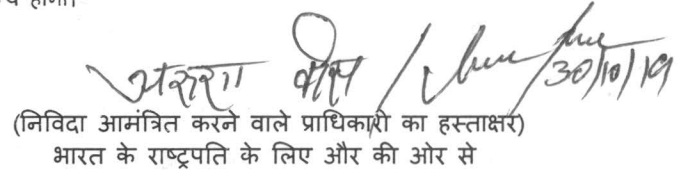 होगा।
अरुण बोस / 30/10/19
(निविदा आमंत्रित करने वाले प्राधिकारी का हस्ताक्षर)
भारत के राष्ट्रपति के लिए और की ओर से